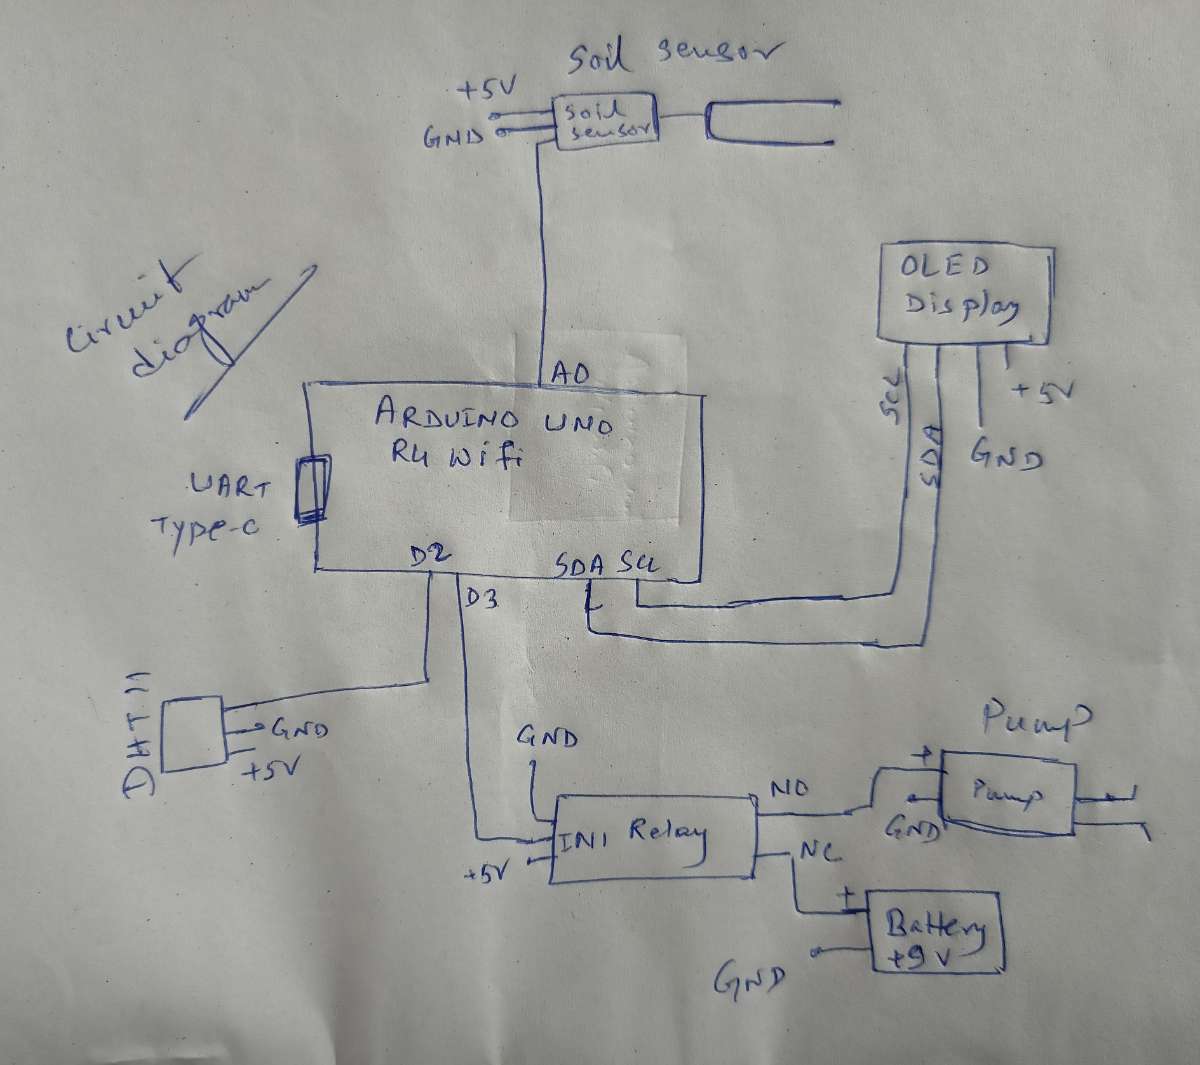 Soil sensor
+5V
GND
Soil
sensor
Circuit
diagram
OLED
Display
SCL
SDA
GND
+5V
A0
ARDUINO UNO
R4 Wifi
UART
Type-c
D2
D3
SDA SCL
DHT 11
GND
+5V
GND
IN1 Relay
+5V
NO
NC
Pump
+
Pump
GND
+
Battery
+9V
GND